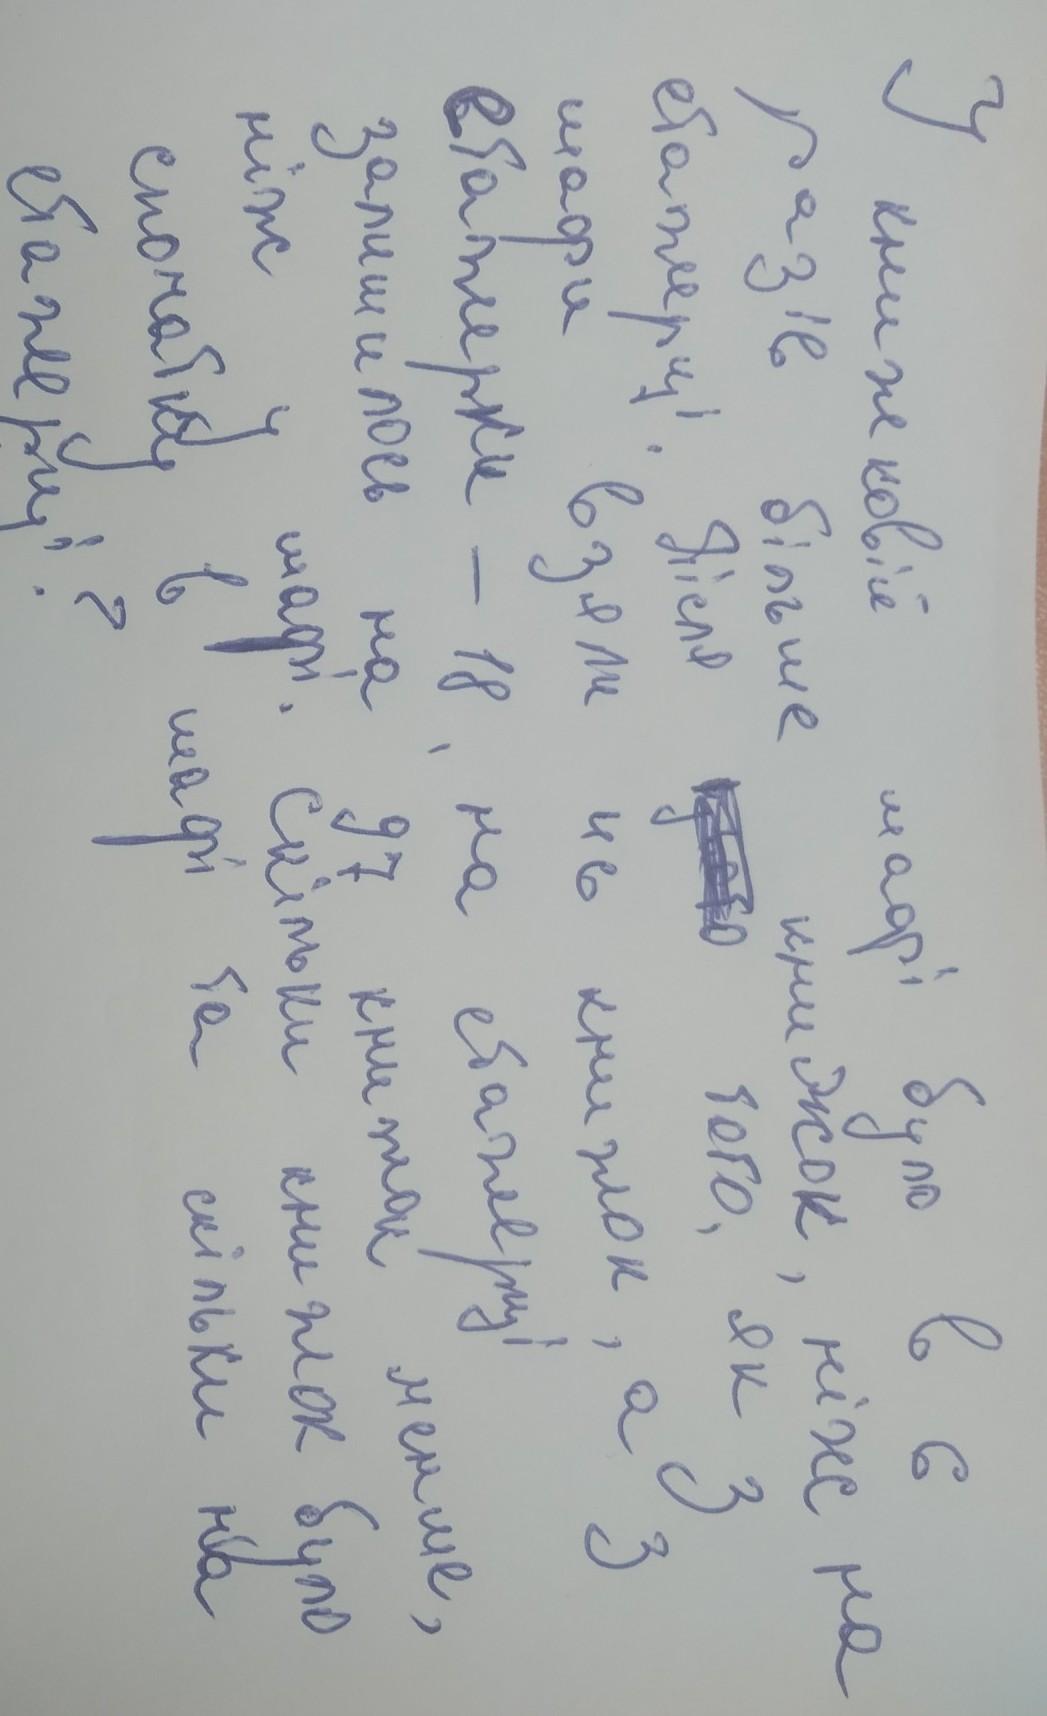 У книжковій шафі було в 6
разів більше книжок, ніж на
етажерці. Після того, як з
шафи взяли 46 книжок, а з
етажерки – 18, на етажерці
залишилось на 97 книжок менше,
ніж у шафі. Скільки книжок було
спочатку в шафі та скільки на
етажерці?